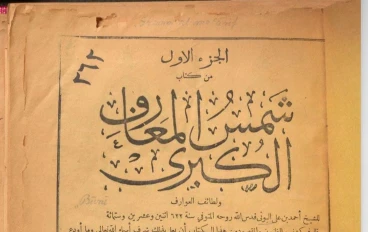 ٢٦٢
الجزء الاول
من كتاب
شمس المعارف
الكبرى
ولطائف العوارف
للشيخ احمد بن على البونى قدس الله روحه المتوفى سنة ٦٢٢ اثنين وعشرين وستمائة